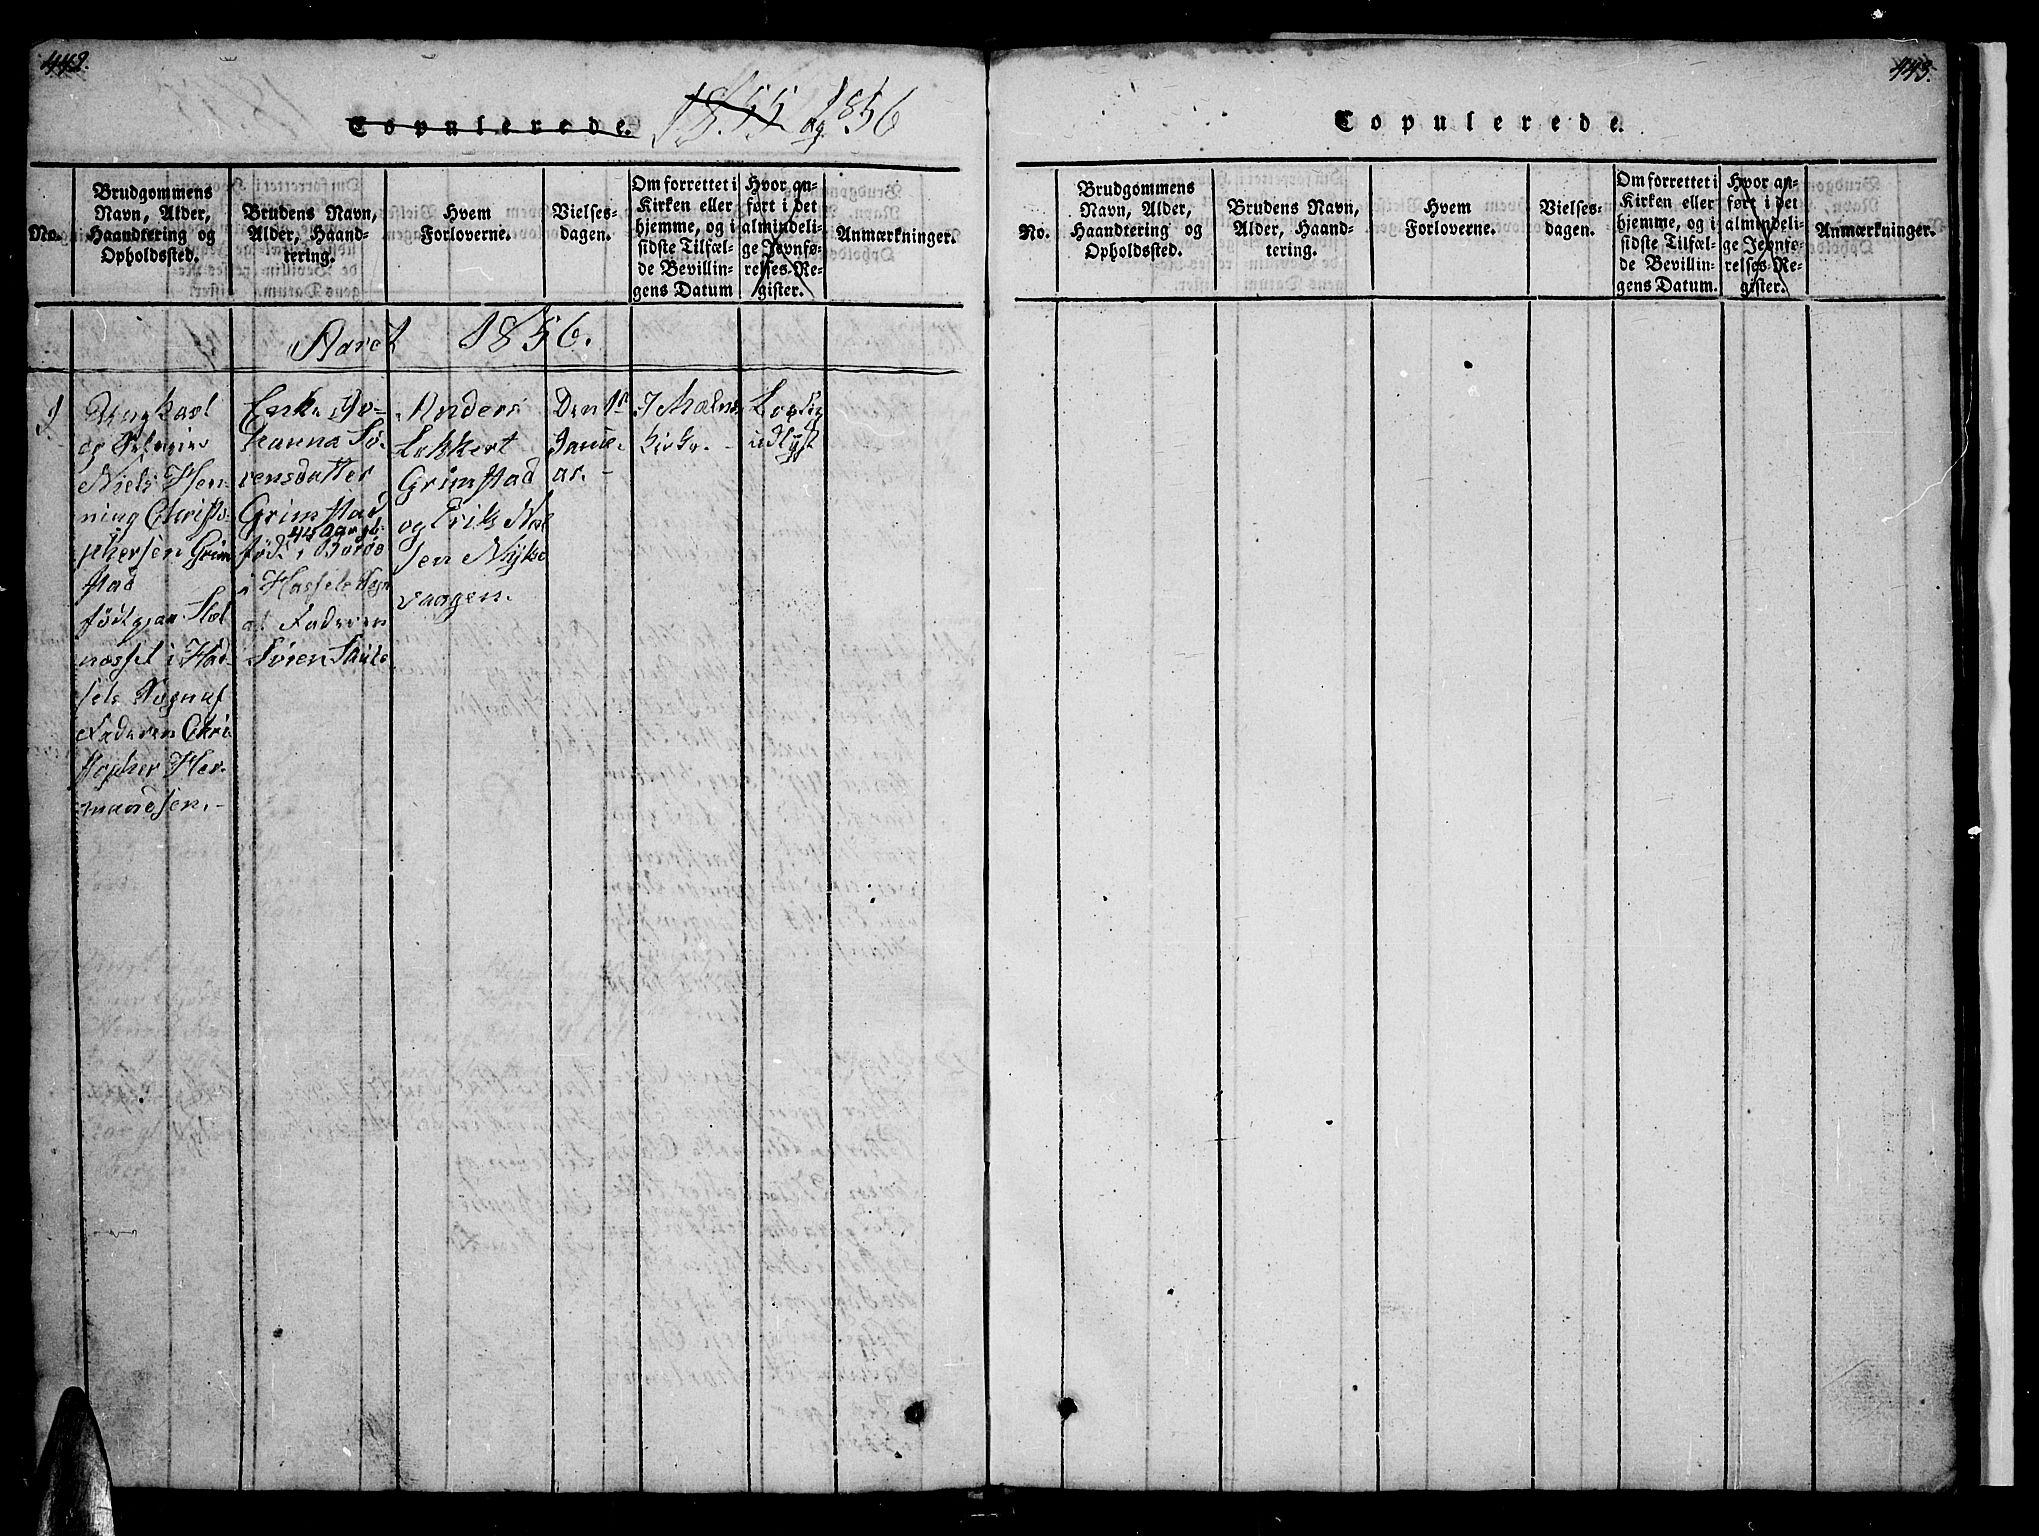 442.
443.
Copulerede. 1855 og 1856
No.
Brudgommens
Navn, Alder,
Haandtering og
Opholdssted.
Brudens Navn,
Alder, Haand-
tering.
Hvem
Forloverne.
Vielses-
dagen.
Om forrettet i
Kirken eller
hjemme, og i
sidste Tilfæl-
de Bevillin-
gens Datum
Hvor an-
ført i det
almindeli-
ge Jevnfø-
relses-Re-
gister.
Anmærkninger.
Aaret 1856.
1
Ungkarl
og
Niels Hen-
ning Christo-
phersen Grim
stad
født paa
næsset i Had-
sels Sogn af
Faderen Chri
stopher Her-
mandsen.-
Enke Jo-
hanna Sø-
rensdatter
Grimstad
44 Aar gl.
født i Borøe
i Hassels Sogn
af Faderen
Søren
Anders
Lokkert
Grimstad
og Erik Niel
sen Nykse
vaagen.
Den 1ste
Janu-
ar.-
I Malnes
Kirke.-
Lovlig
udlyst
Copulerede.
No.
Brudgommens
Navn, Alder,
Haandtering og
Opholdssted.
Brudens Navn,
Alder, Haand-
tering.
Hvem
Forloverne.
Vielses-
dagen.
Om forrettet i
Kirken eller
hjemme, og i
sidste Tilfæl-
de Bevillin-
gens Datum.
Hvor an-
ført i det
almindeli-
ge Jevnfø-
relses-Re-
gister.
Anmærkninger.